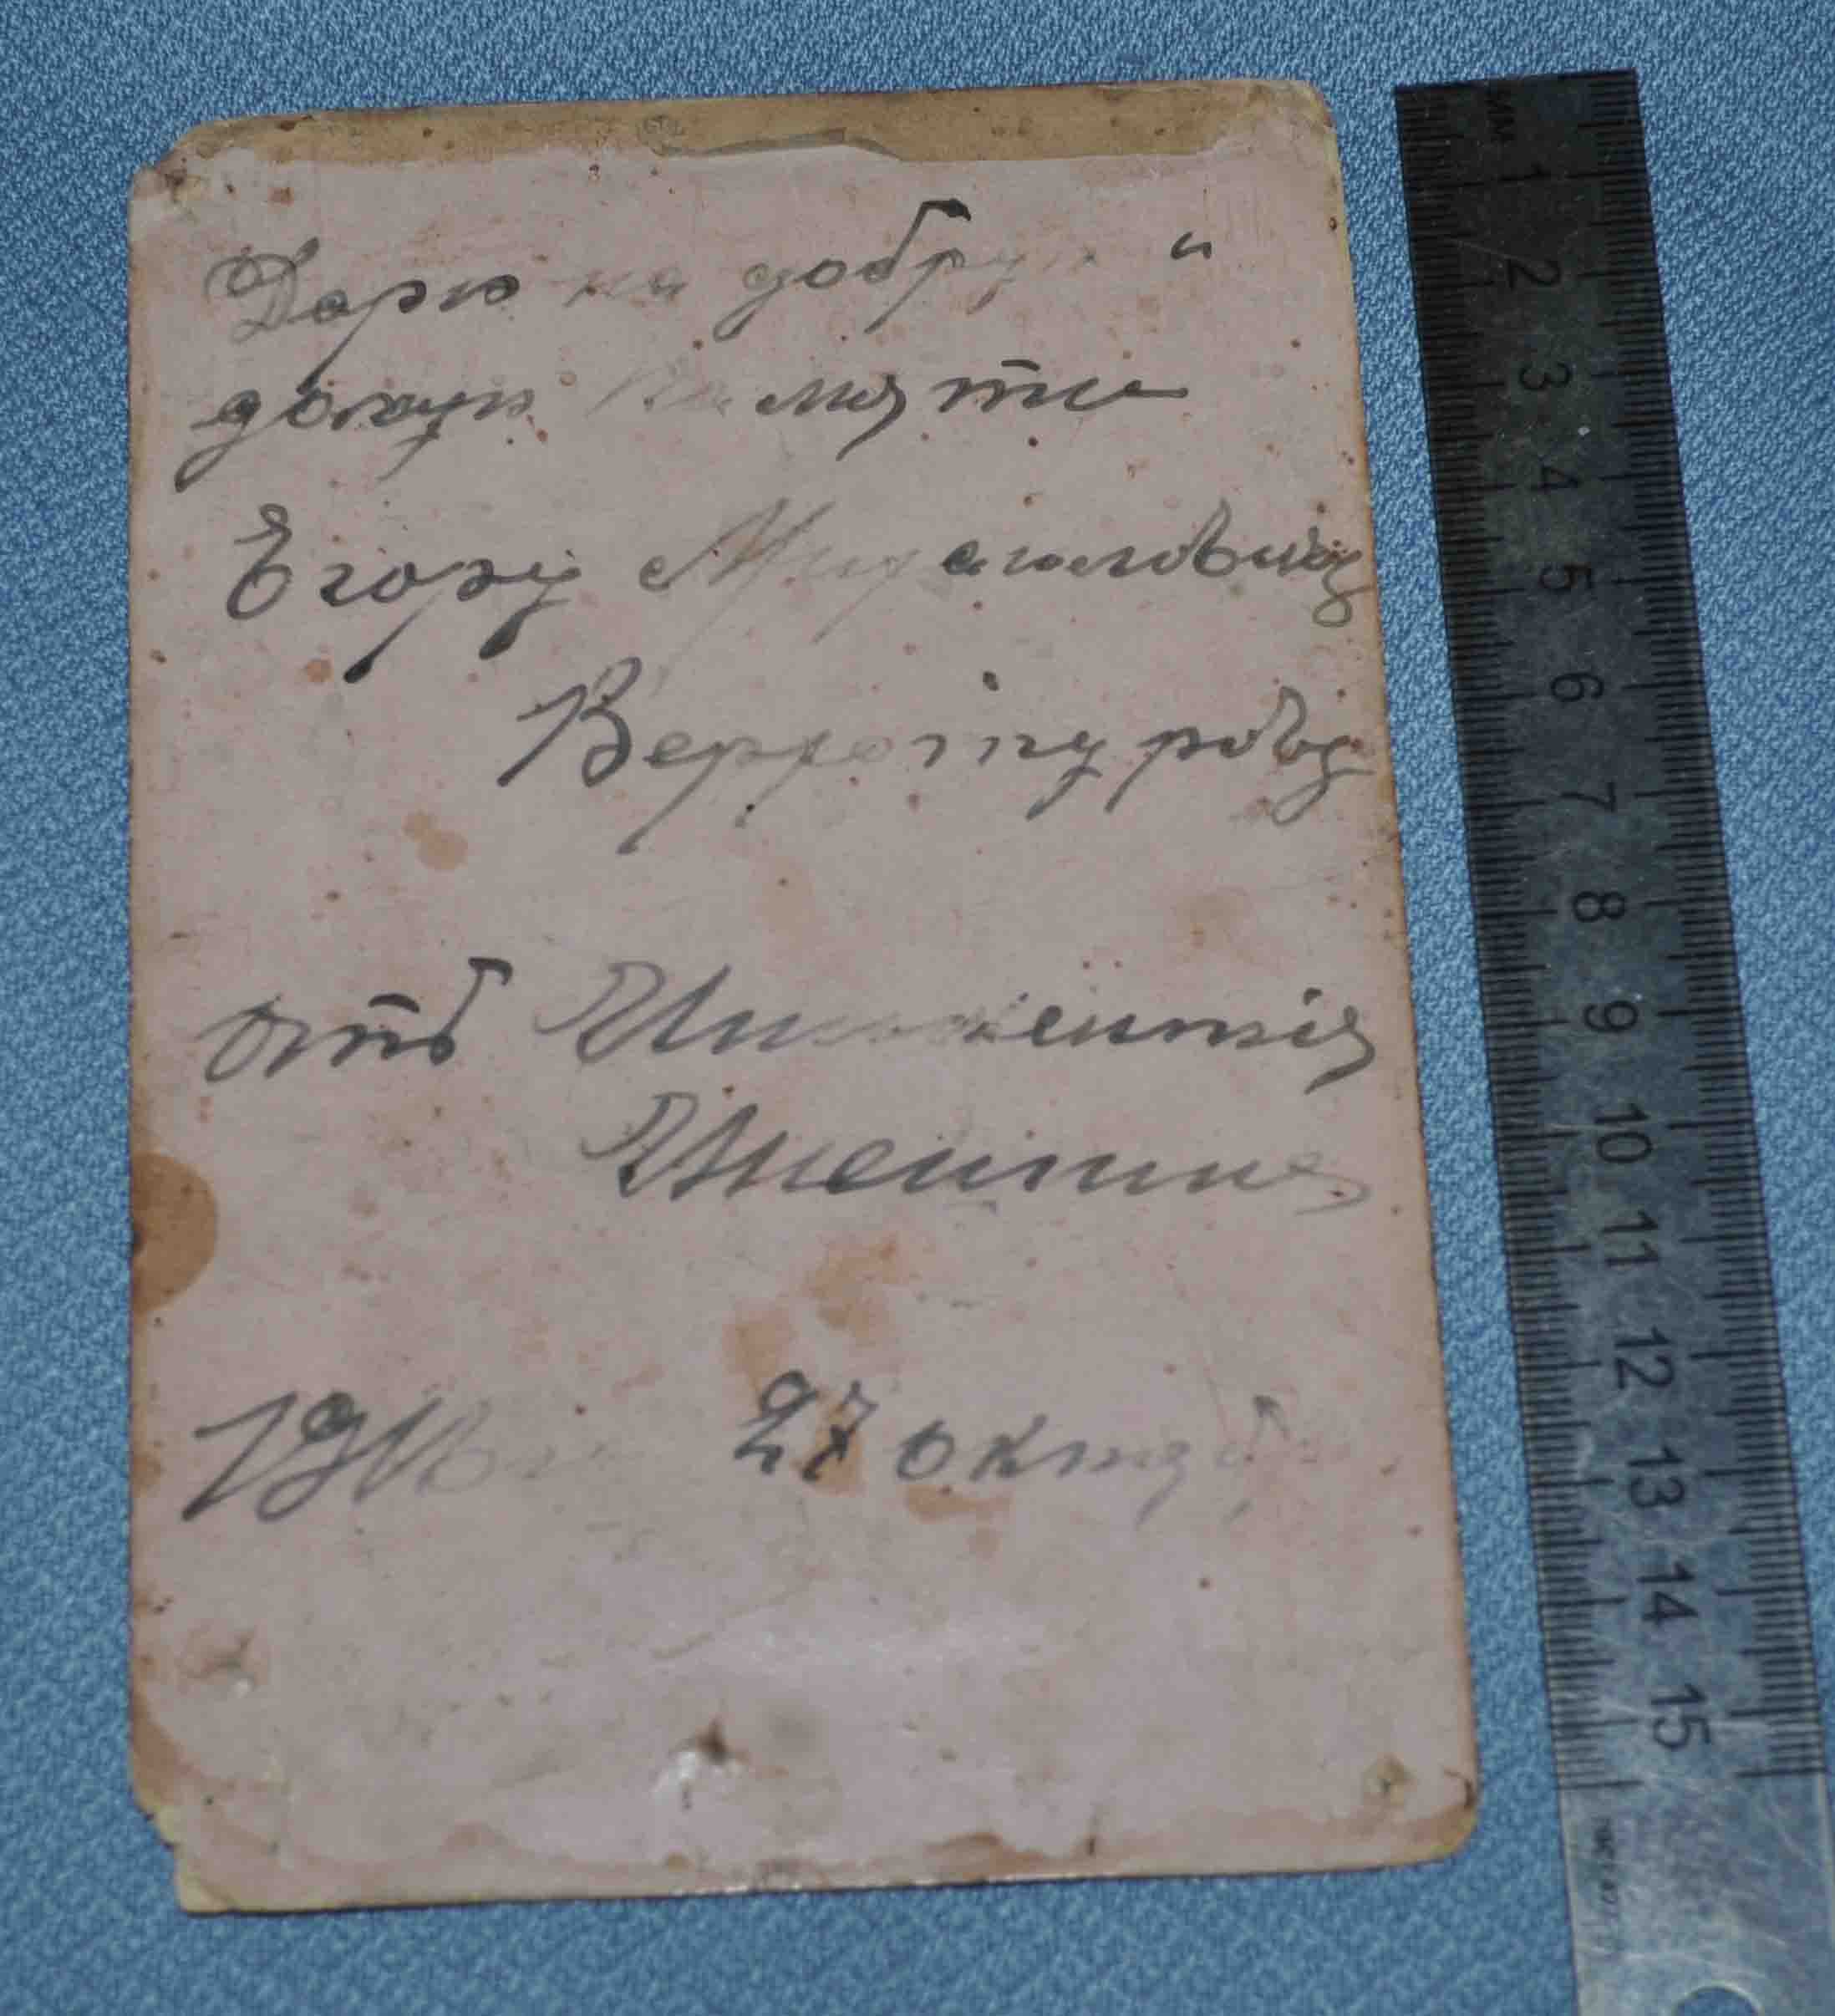 Дарю на добрую и
долгую память
Егору Михайловичу
Верхотурову
отъ Иннокентія
27 октяб
мм 1 2 3 4 5 6 7 8 9 10 11 12 13 14 15